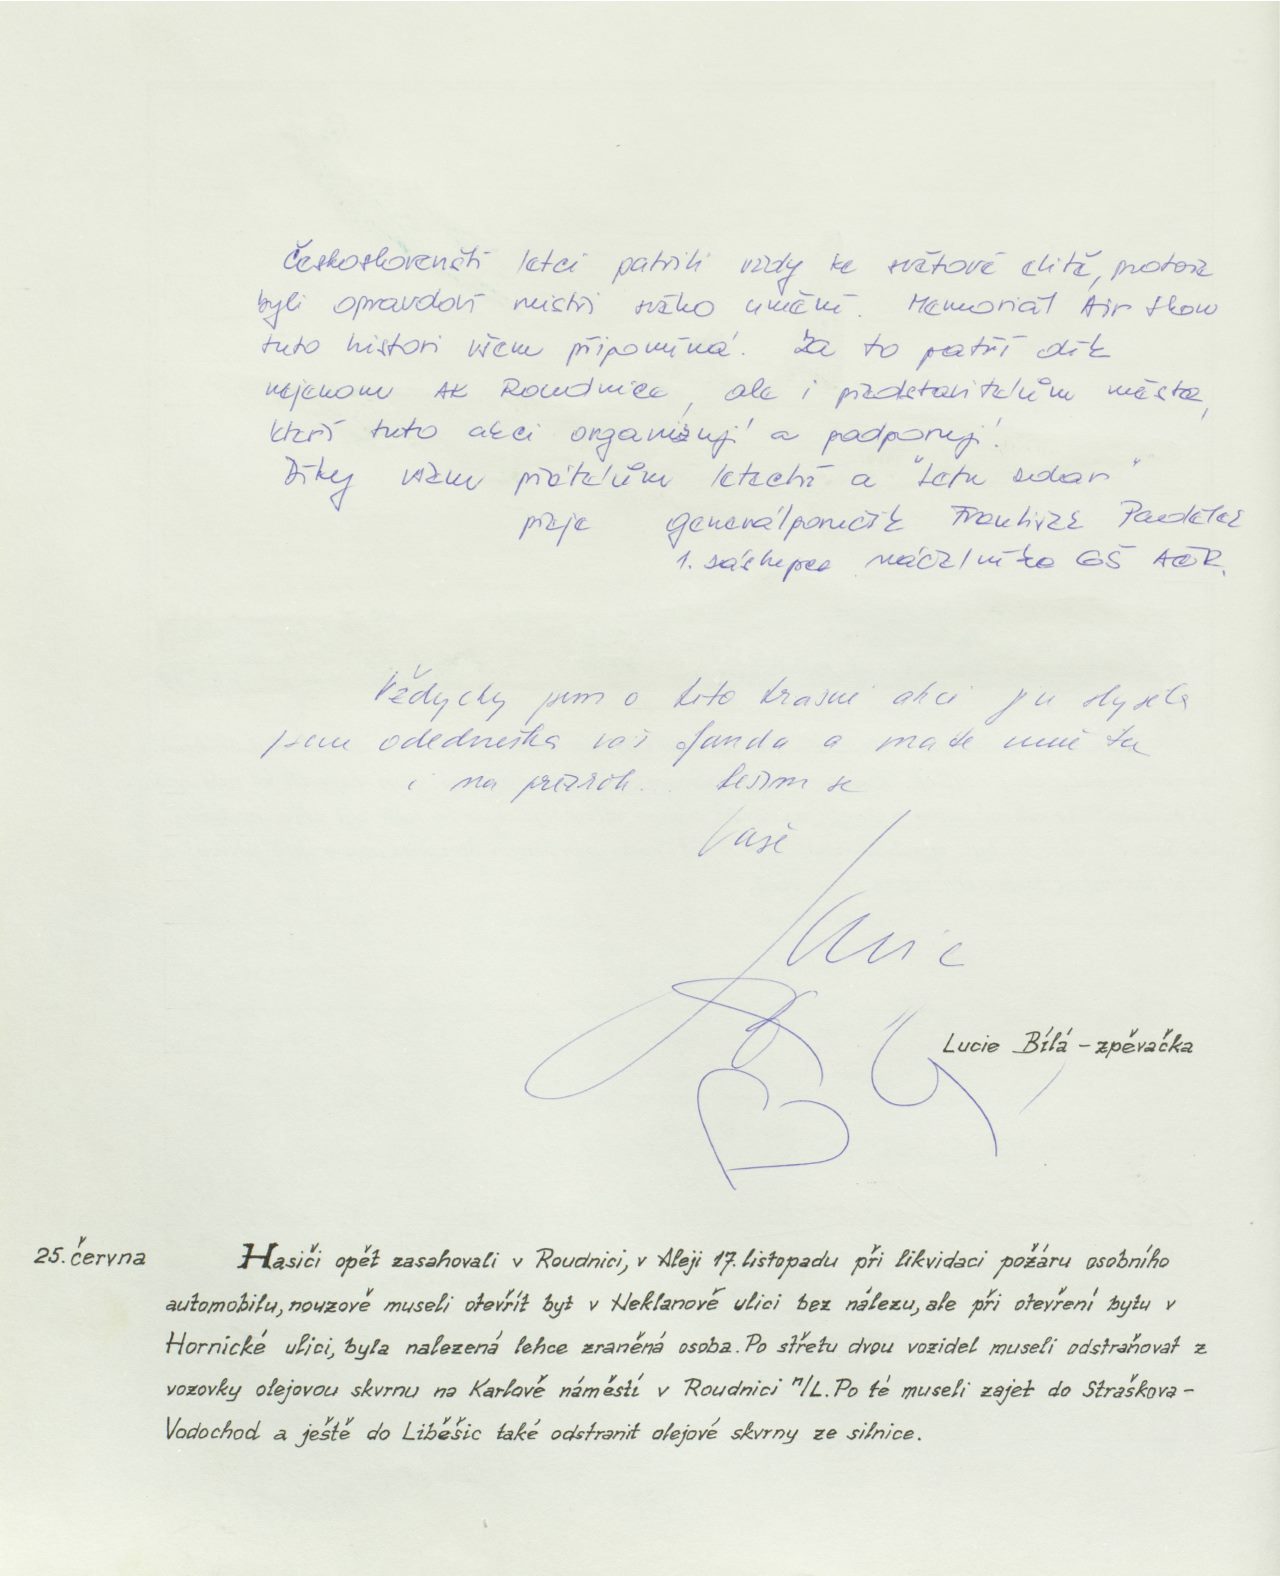 Českoslovenští letci patřili vždy ke světové elitě, protože
byli opravdoví mistři svého umění. Memorial Air Show
tuto histori všem připomíná. Za to patří dík
nejenom AK Roudnice, ale i představitelům města,
kteří tuto akci organizují a podporují.
Díky všem přátelům letectví a "Letu zdar"
přeje generálporučík František Padělek
1. zástupce náčelníka GŠ AČR.
Vždycky jsem o této krásné akci jen slyšela
jsem odedneška váš fanda a máte mne tu
i na přízrok. těším se
Vaše
Lucie
Lucie Bílá - zpěvačka
25. června Hasiči opět zasahovali v Roudnici, v Aleji 17. listopadu při likvidaci požáru osobního
automobilu, nouzově museli otevřít byt v Neklanově ulici bez nálezu, ale při otevření bytu v
Hornické ulici, byla nalezená lehce zraněná osoba. Po střetu dvou vozidel museli odstraňovat z
vozovky olejovou skvrnu na Karlově náměstí v Roudnici n/L. Po té museli zajet do Straškova-
Vodochod a ještě do Liběšic také odstranit olejové skvrny ze silnice.